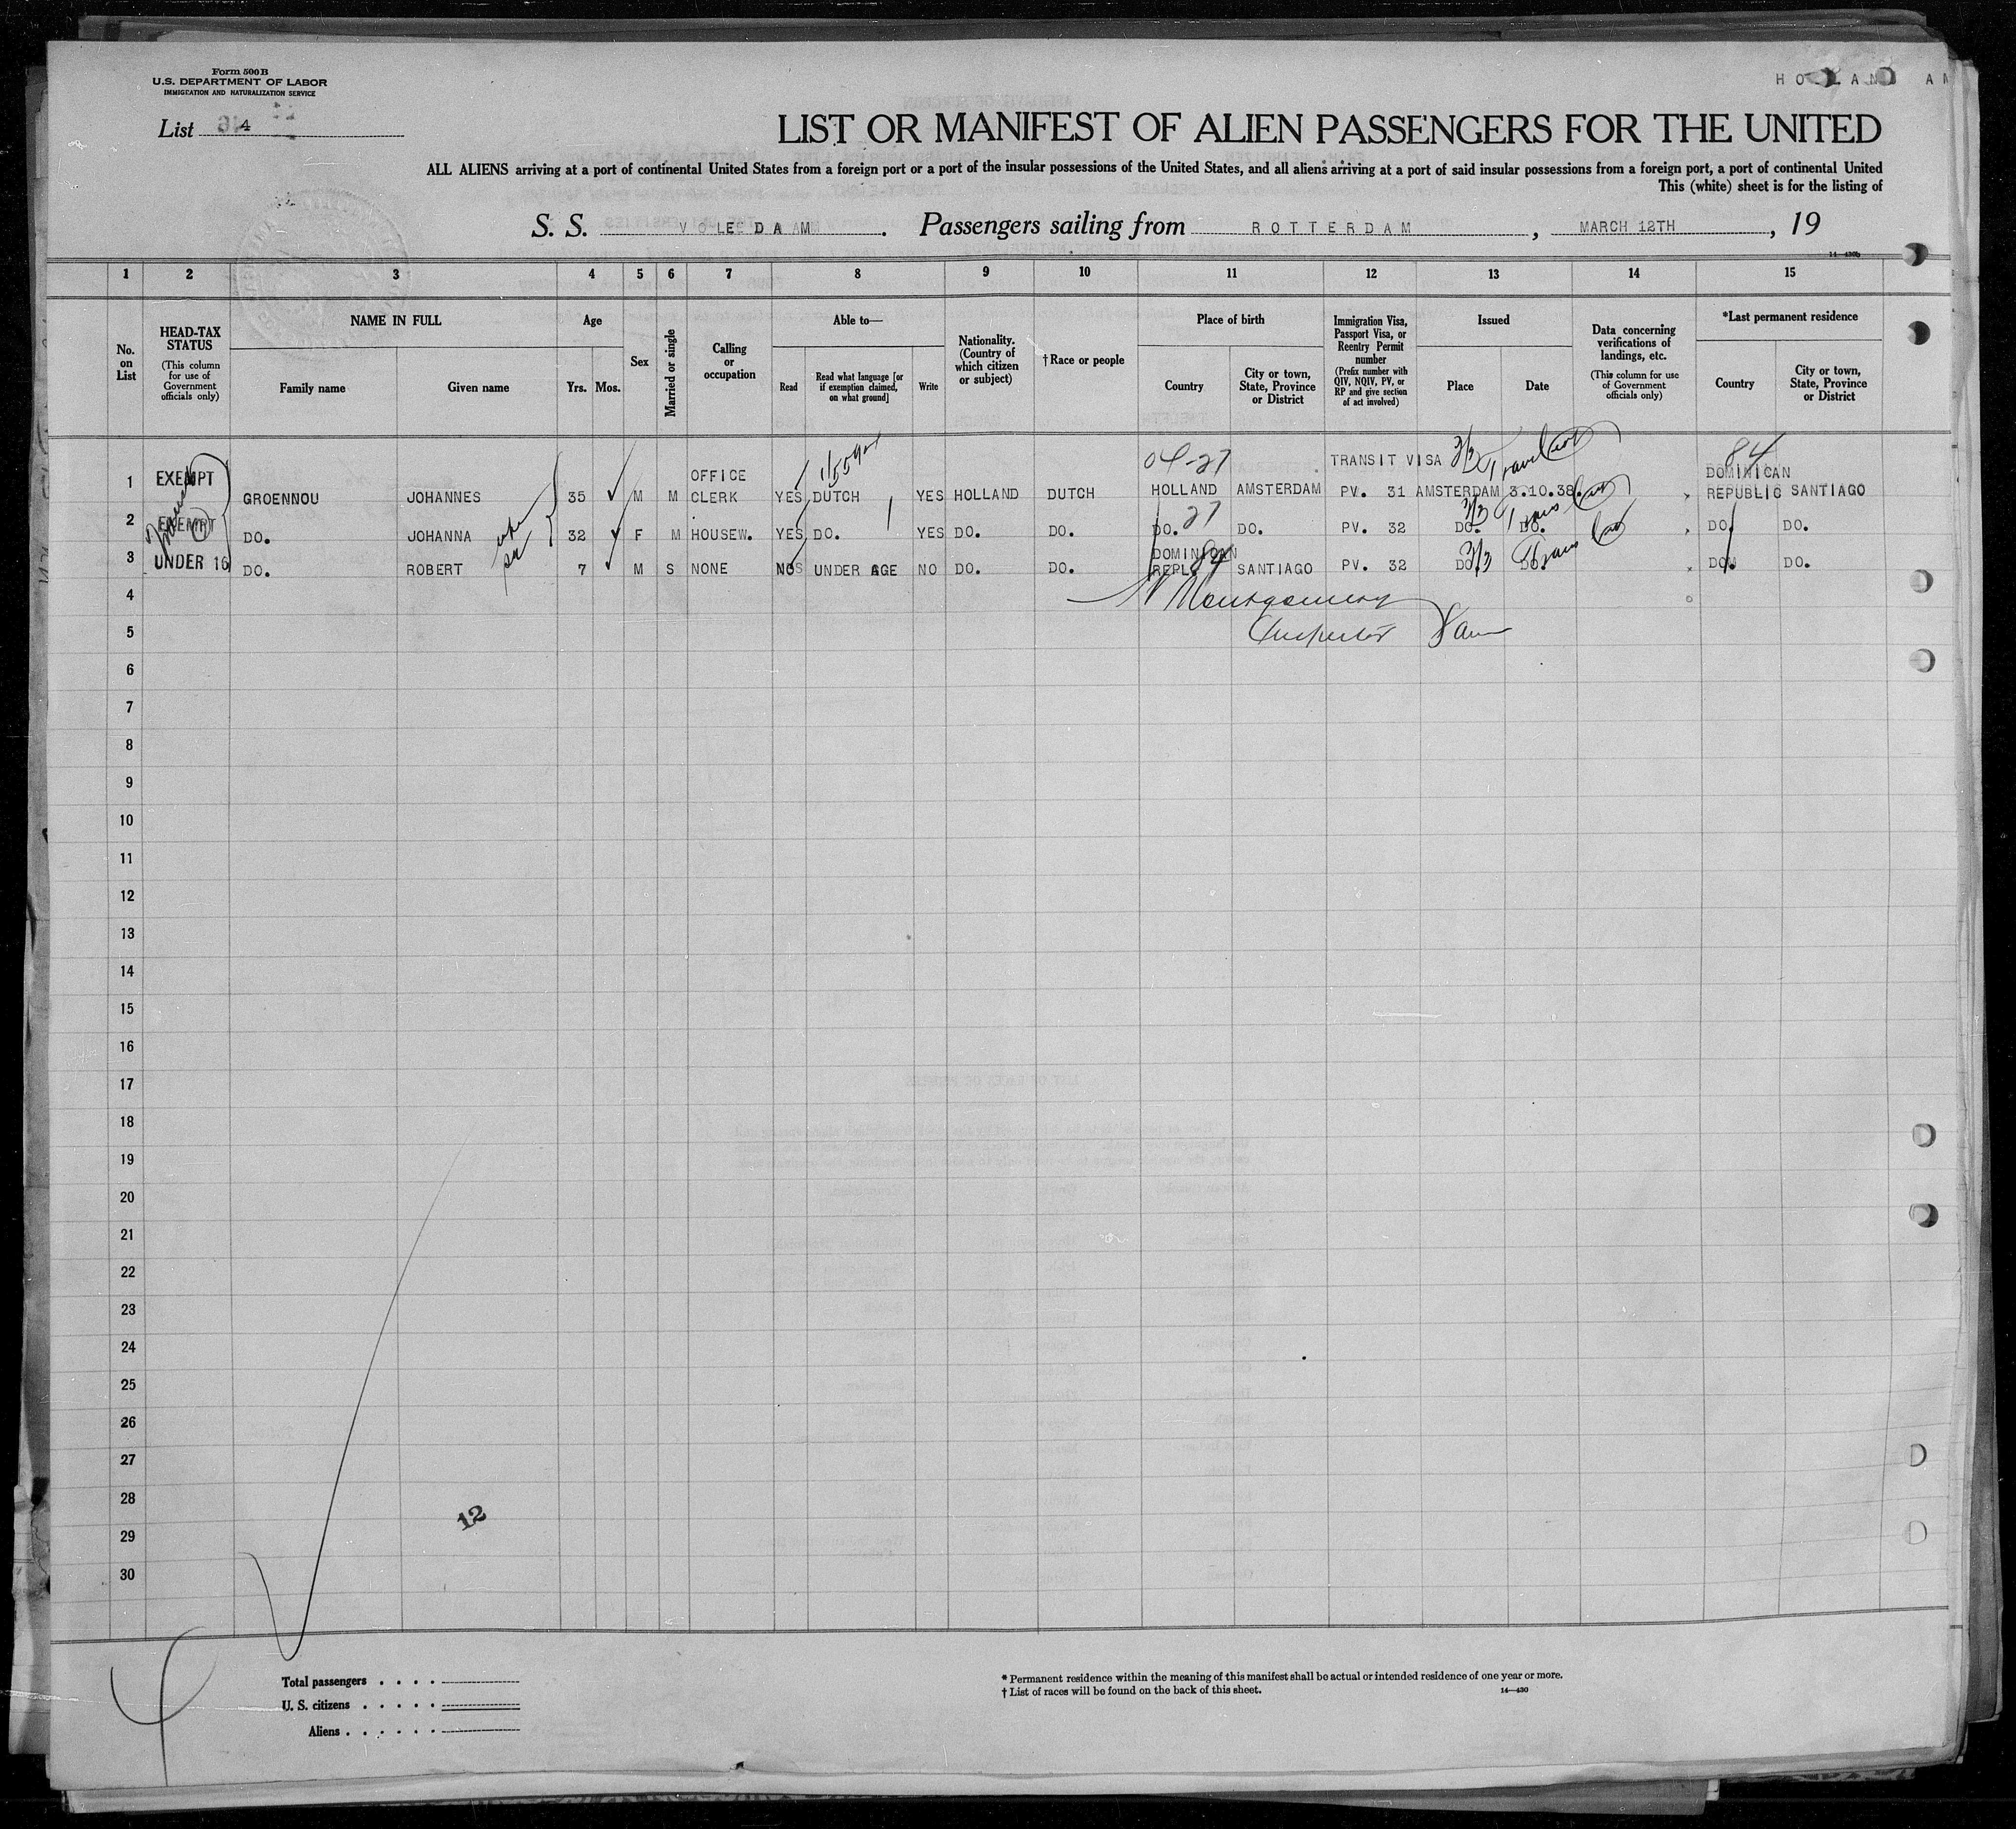 Form 500B
U.S. DEPARTMENT OF LABOR
IMMIGRATION AND NATURALIZATION SERVICE
HOLLAND AM
List 4
LIST OR MANIFEST OF ALIEN PASSENGERS FOR THE UNITED
ALL ALIENS arriving at a port of continental United States from a foreign port or a port of the insular possessions of the United States, and all aliens arriving at a port of said insular possessions from a foreign port, a port of continental United
This (white) sheet is for the listing of
S. S. VOLEDAAM. Passengers sailing from ROTTERDAM, MARCH 12TH, 19
14—430b
1 2 3 4 5 6 7 8 9 10 11 12 13 14 15
No. on List
HEAD-TAX STATUS (This column for use of Government officials only)
NAME IN FULL
Family name
Given name
Age
Yrs. Mos.
Sex
Married or single
Calling or occupation
Able to—
Read
Read what language [or if exemption claimed, on what ground]
Write
Nationality. (Country of which citizen or subject)
†Race or people
Place of birth
Country
City or town, State, Province or District
Immigration Visa, Passport Visa, or Reentry Permit number (Prefix number with QIV, NQIV, PV, or RP and give section of act involved)
Issued
Place
Date
Data concerning verifications of landings, etc. (This column for use of Government officials only)
*Last permanent residence
Country
City or town, State, Province or District
04-27 TRANSIT VISA 3/3 84
1 EXEMPT GROENNOU JOHANNES 35 M M OFFICE CLERK YES DUTCH YES HOLLAND DUTCH HOLLAND AMSTERDAM PV. 31 AMSTERDAM 3.10.38. DOMINICAN REPUBLIC SANTIAGO
27 3/3 Trans
2 EXEMPT DO. JOHANNA 32 F M HOUSEW. YES DO. YES DO. DO. DO. DO. PV. 32 DO. DO. DO. DO.
84 3/3 Trans
3 UNDER 16 DO. ROBERT 7 M S NONE NO UNDER AGE NO DO. DO. DOMINICAN REPL. SANTIAGO PV. 32 DO. DO. DO. DO.
4 Montgomery
5 Inspector
6
7
8
9
10
11
12
13
14
15
16
17
18
19
20
21
22
23
24
25
26
27
28
12
29
30
Total passengers . . . .
U. S. citizens . . . . .
Aliens . . . . . .
* Permanent residence within the meaning of this manifest shall be actual or intended residence of one year or more.
† List of races will be found on the back of this sheet.
14—430